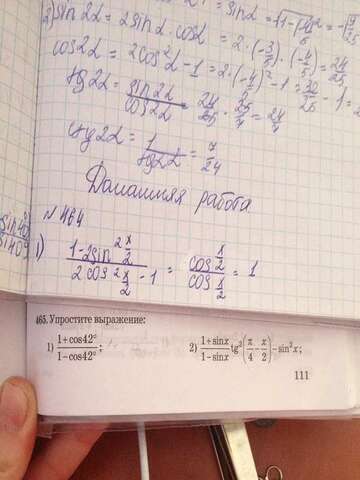 2) sin2α = 2sinα · cosα = 2 · (-3/5) · (-4/5) = 24/25
cos2α = 2cos²α - 1 = 2 · (-4/5)² - 1 = - 1
tg2α = sin2α/cos2α = 24/25 · 25/7 = 24/7
ctg2α = 1/tg2α = 7/24
Домашняя работа
№ 464
1) (1-2sin² x/2)/(2cos² x/2 - 1) = (cos x/2)/(cos x/2) = 1
465. Упростите выражение:
1) (1+cos42°)/(1-cos42°); 2) (1+sinx)/(1-sinx) tg²(π/4 - x/2) - sin²x;
111